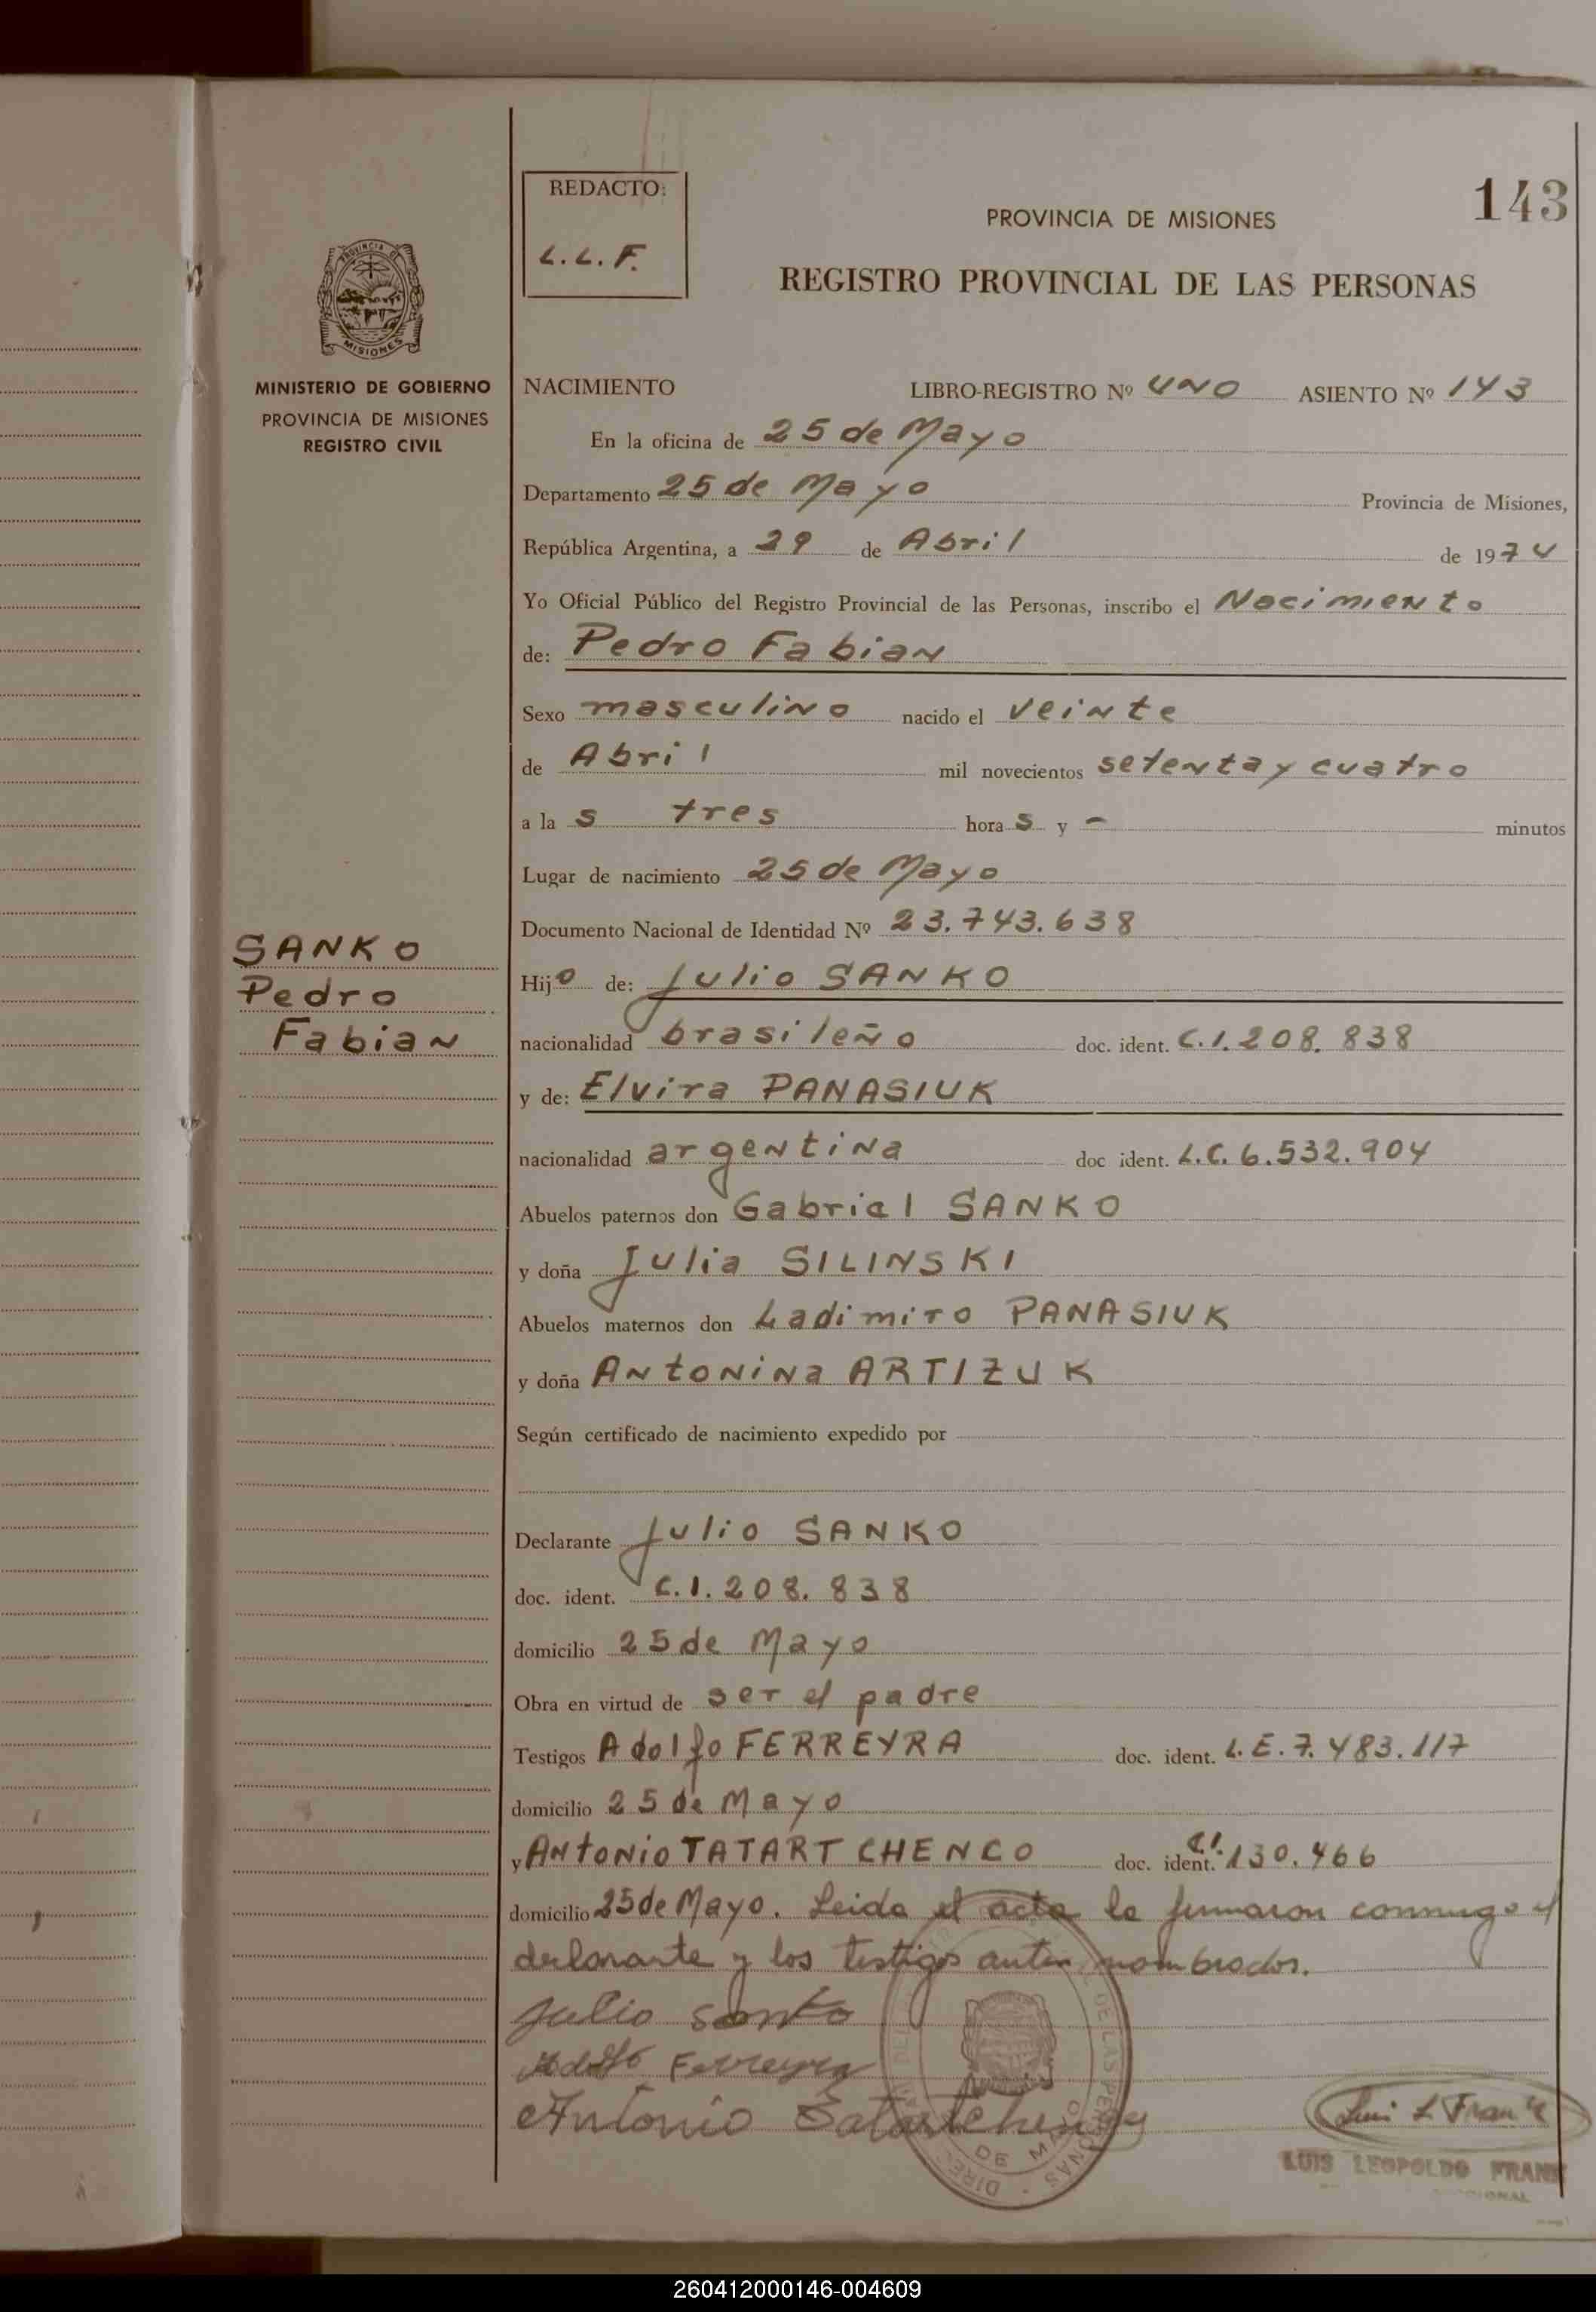 143
REDACTO:
L.L.F.
PROVINCIA DE MISIONES
REGISTRO PROVINCIAL DE LAS PERSONAS
PROVINCIA DE
MISIONES
MINISTERIO DE GOBIERNO
PROVINCIA DE MISIONES
REGISTRO CIVIL
NACIMIENTO LIBRO-REGISTRO Nº UNO ASIENTO Nº 143
En la oficina de 25 de Mayo
Departamento 25 de Mayo Provincia de Misiones,
República Argentina, a 29 de Abril de 1974
Yo Oficial Público del Registro Provincial de las Personas, inscribo el Nacimiento
de: Pedro Fabian
Sexo masculino nacido el veinte
de Abril mil novecientos setenta y cuatro
a la s tres hora s y - minutos
Lugar de nacimiento 25 de Mayo
Documento Nacional de Identidad Nº 23.743.638
SANKO
Pedro
Fabian
Hijo de: Julio SANKO
nacionalidad brasileño doc. ident. C.I. 208.838
y de: Elvira PANASIUK
nacionalidad argentina doc ident. L.C. 6.532.904
Abuelos paternos don Gabriel SANKO
y doña Julia SILINSKI
Abuelos maternos don Ladimiro PANASIUK
y doña Antonina ARTIZUK
Según certificado de nacimiento expedido por
Declarante Julio SANKO
doc. ident. C.I. 208.838
domicilio 25 de Mayo
Obra en virtud de ser el padre
Testigos Adolfo FERREYRA doc. ident. L.E. 7.483.117
domicilio 25 de Mayo
y Antonio TATARTCHENCO doc. ident. C.I. 130.466
domicilio 25 de Mayo. Leida el acta la firmaron conmigo el
declarante y los testigos antes nombrados.
Julio Sanko
Adolfo Ferreyra
Antonio Tatartchenco
Luis L Frank
LUIS LEOPOLDO FRANK
260412000146-004609